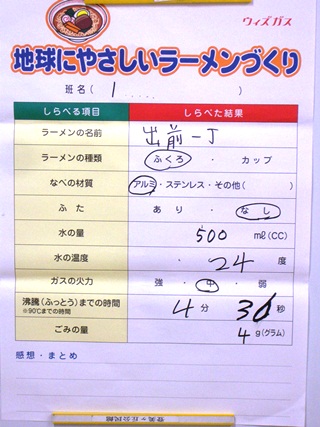 ウィズガス
地球にやさしいラーメンづくり
班名( 1 )
しらべる項目 しらべた結果
ラーメンの名前 出前一丁
ラーメンの種類 ふくろ ・ カップ
なべの材質 アルミ・ステンレス・その他( )
ふた あり ・ なし
水の量 500 ml(CC)
水の温度 24 度
ガスの火力 強 ・ 中 ・ 弱
沸騰(ふっとう)までの時間 4分 30秒
※90℃までの時間
ごみの量 4 g(グラム)
感想・まとめ